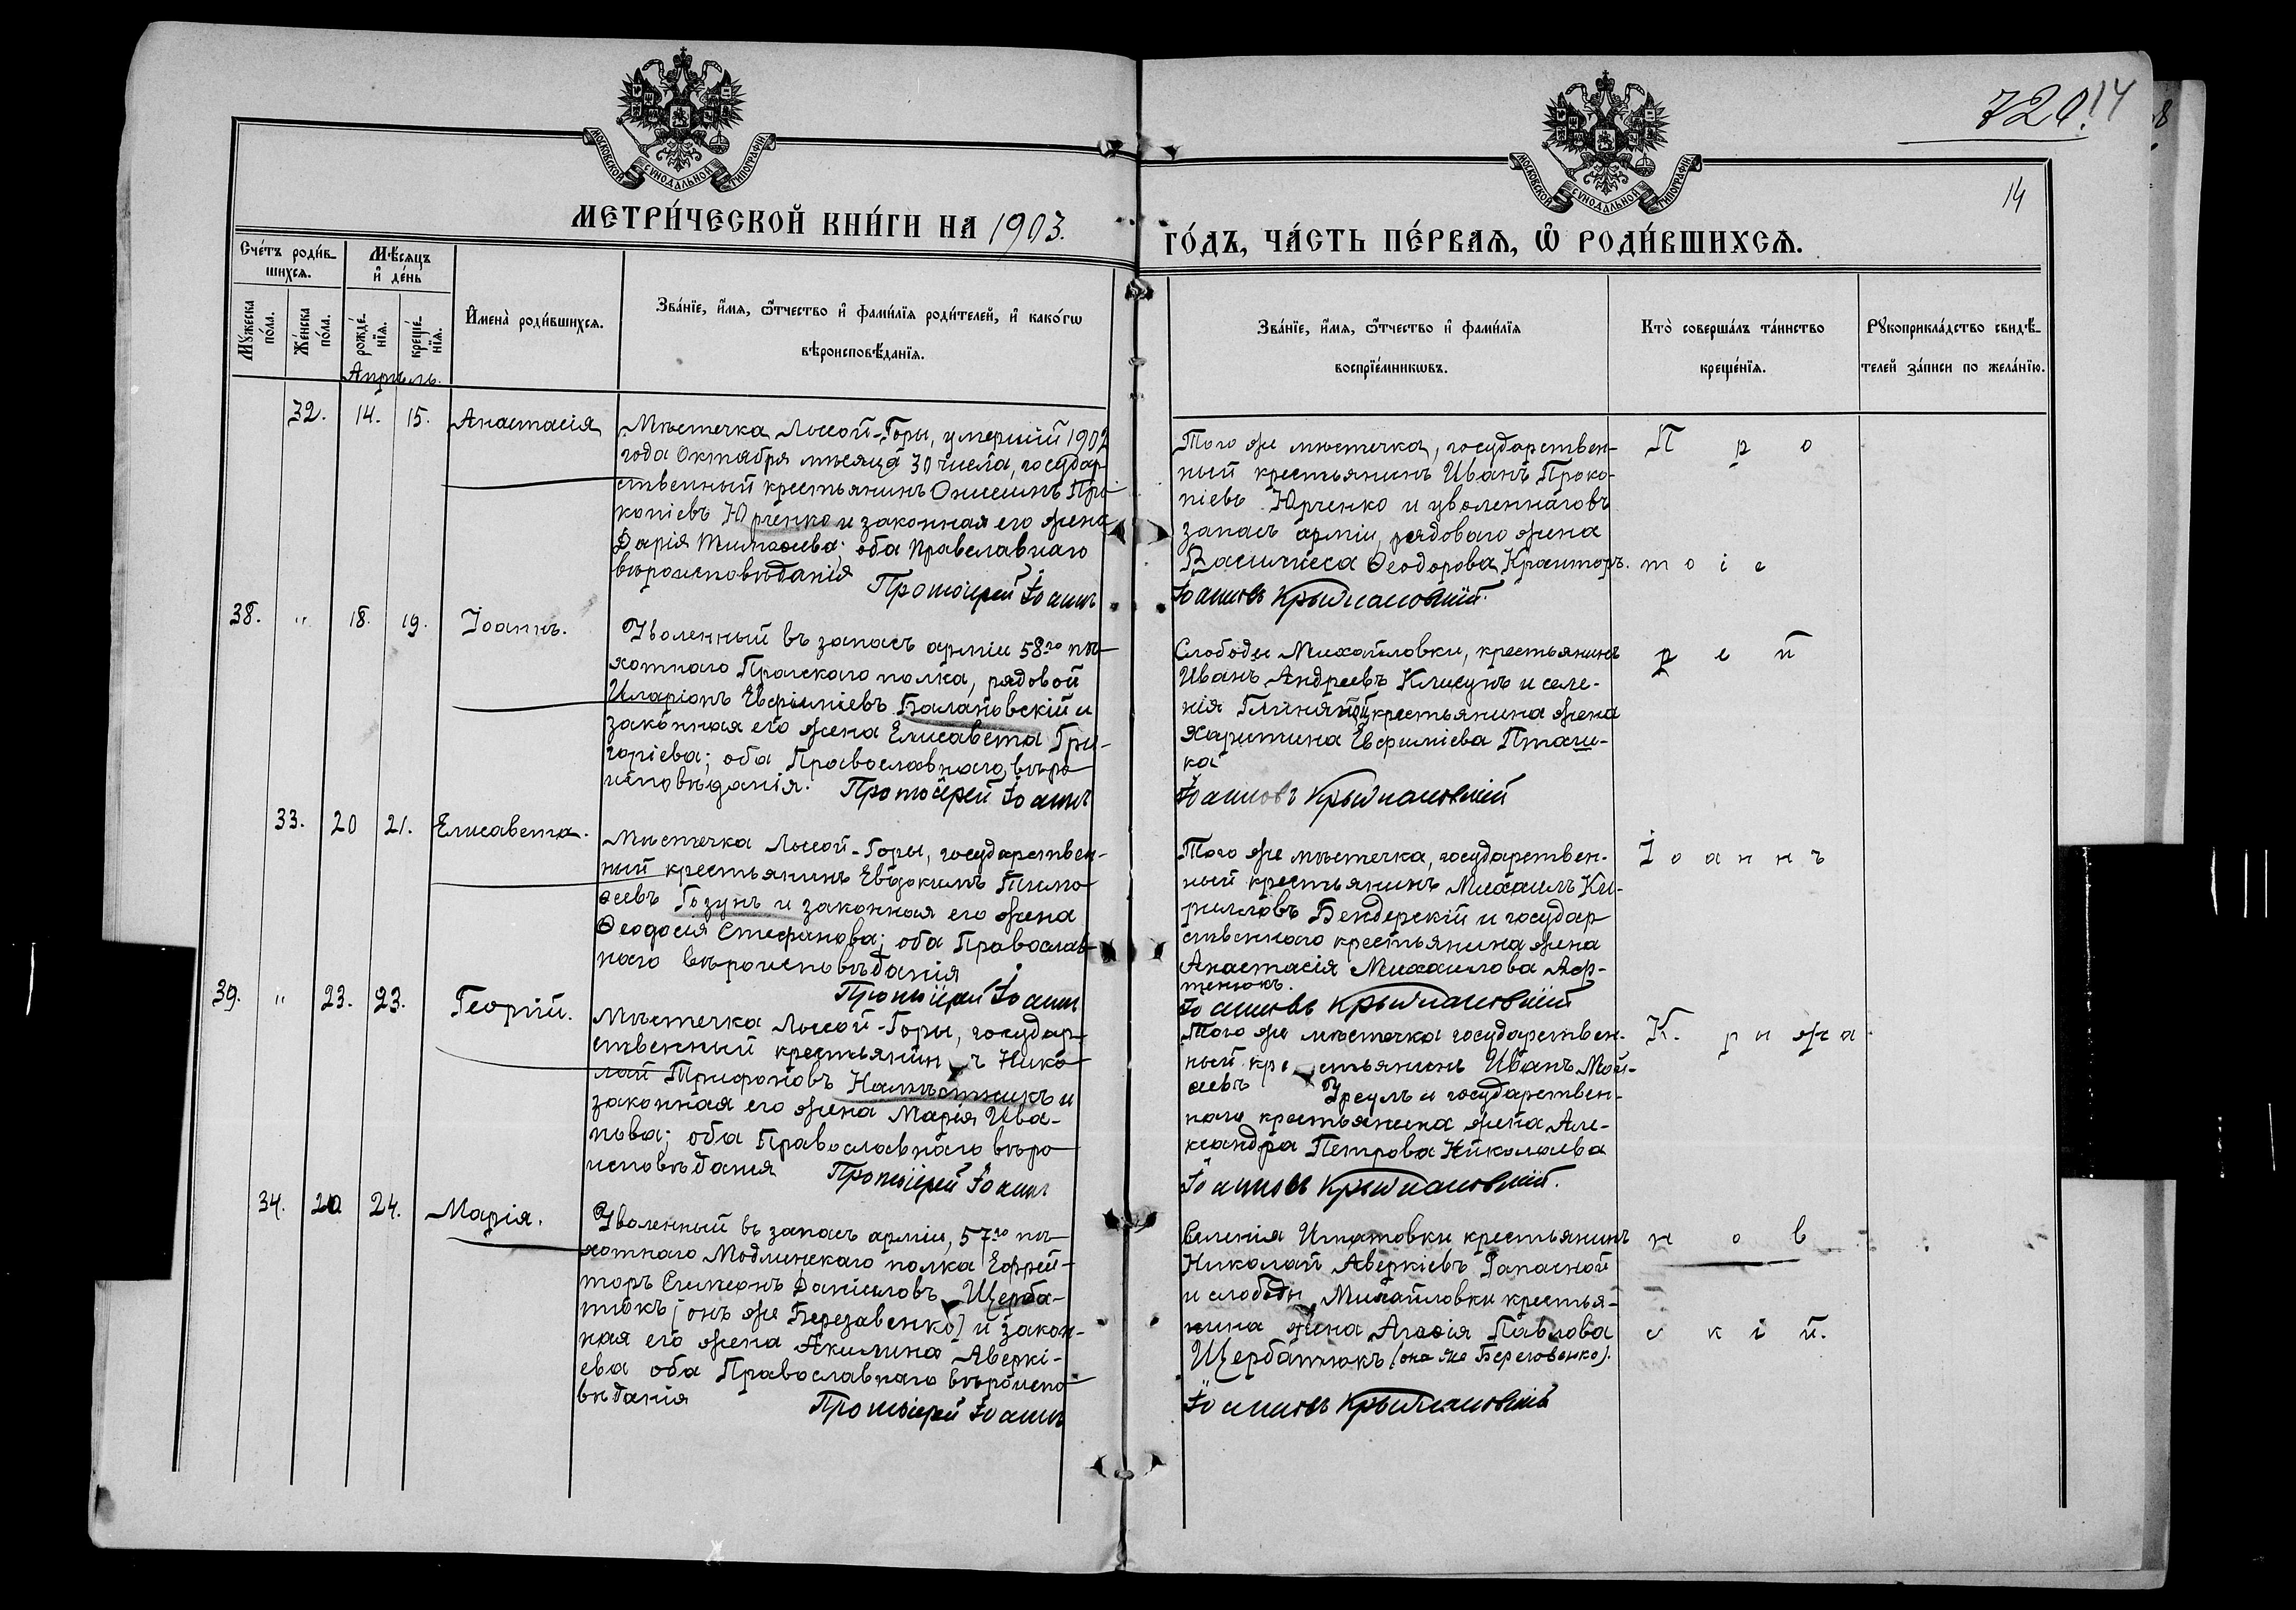 720.
14
14
МОСКОВСКОЙ СѴНОДАЛЬНОЙ ТИПОГРАФІИ
МОСКОВСКОЙ СѴНОДАЛЬНОЙ ТИПОГРАФІИ
МЕТРИ́ЧЕСКОЙ КНИ́ГИ НА 1903.
ГО́ДЪ, ЧА́СТЬ ПЕ́РВАѦ, Ѡ҆ РОДИ́ВШИХСѦ.
Сче́тъ роди́в-
шихсѧ.
Мѣ́сяцъ
и҆ де́нь
Мꙋ́жеска
по́ла.
Же́нска
по́ла.
рожде́-
нїѧ.
креще́-
нїѧ.
И҆мена̀ роди́вшихсѧ.
Зва́нїе, и҆́мѧ, ѻ҆́тчество и҆ фами́лїѧ роди́телей, и҆ како́гѡ
вѣроисповѣ́данїѧ.
Зва́нїе, и҆́мѧ, ѻ҆́тчество и҆ фами́лїѧ
воспрїе́мникѡвъ.
Кто̀ соверша́лъ та́инство
креще́нїѧ.
Рꙋкоприкла́дство свидѣ́-
телей за́писи по жела́нїю.
Апрѣль.
32. 14. 15. Анастасія
Мѣстечка Лысой-Горы, умершій 1902
года Октября мѣсяца 30 числа, государ-
ственный крестьянинъ Онисимъ Про-
копіевъ Юрченко и законная его жена
Дарія Тимоѳеева; оба Православнаго
вѣроисповѣданія
Протоіерей Іоаннъ
Того же мѣстечка, государствен-
ный крестьянинъ Иванъ Проко-
піевъ Юрченко и уволеннаго въ
запасъ арміи, рядового жена
Василиса Ѳеодорова Кранторъ.
Іоанновъ Крыжановскій.
П р о
т о і е
38. " 18. 19. Іоаннъ.
Уволенный въ запасъ арміи 58го пѣ-
хотнаго Прагскаго полка, рядовой
Иларіонъ Евфиміевъ Балановскій и
законная его жена Елисавета Гри-
горіева; оба Православнаго вѣро-
исповѣданія.
Протоіерей Іоаннъ
Слободы Михайловки, крестьянинъ
Иванъ Андреевъ Клисунъ и селе-
нія Гляняной крестьянина жена
Харитина Евфиміева Пташ-
ка
Іоанновъ Крыжановскій
р е й
33. 20 21. Елисавета.
Мѣстечка Лысой-Горы, государствен-
ный крестьянинъ Евдокимъ Тимо-
ѳеевъ Гозунъ и законная его жена
Ѳеодосія Стефанова; оба Православ-
наго вѣроисповѣданія
Протоіерей Іоаннъ
Того же мѣстечка, государствен-
ный крестьянинъ Михаилъ Ки-
рилловъ Бендерскій и государ-
ственнаго крестьянина жена
Анастасія Михаилова Аф-
тенюкъ.
Іоанновъ Крыжановскій
І о а н н ъ
39. " 23. 23. Георгій.
Мѣстечка Лысой-Горы, государ-
ственный крестьянинъ Нико-
лай Трифоновъ Намѣстникъ и
законная его жена Марія Ива-
нова; оба Православнаго вѣро-
исповѣданія
Протоіерей Іоаннъ
Того же мѣстечка государствен-
ный крестьянинъ Иванъ Мой-
сеевъ Уреулъ и государствен-
наго крестьянина жена Але-
ксандра Петрова Николаева
Іоанновъ Крыжановскій.
К. р ы ж а
34. 20 24. Марія.
Уволенный въ запасъ арміи, 57го пѣ-
хотнаго Модлинскаго полка Ефрей-
торъ Симеонъ Даніиловъ Щерба-
тюкъ (онъ же Березавенко) и закон-
ная его жена Акилина Аверкі-
ева оба Православнаго вѣроиспо-
вѣданія
Протоіерей Іоаннъ
Селенія Игнатовки крестьянинъ
Николай Аверкіевъ Запасной
и слободы Михайловки крестья-
нина жена Агаѳія Павлова
Щербатюкъ (она же Береговенко).
Іоанновъ Крыжановскій
н о в
с к і й.